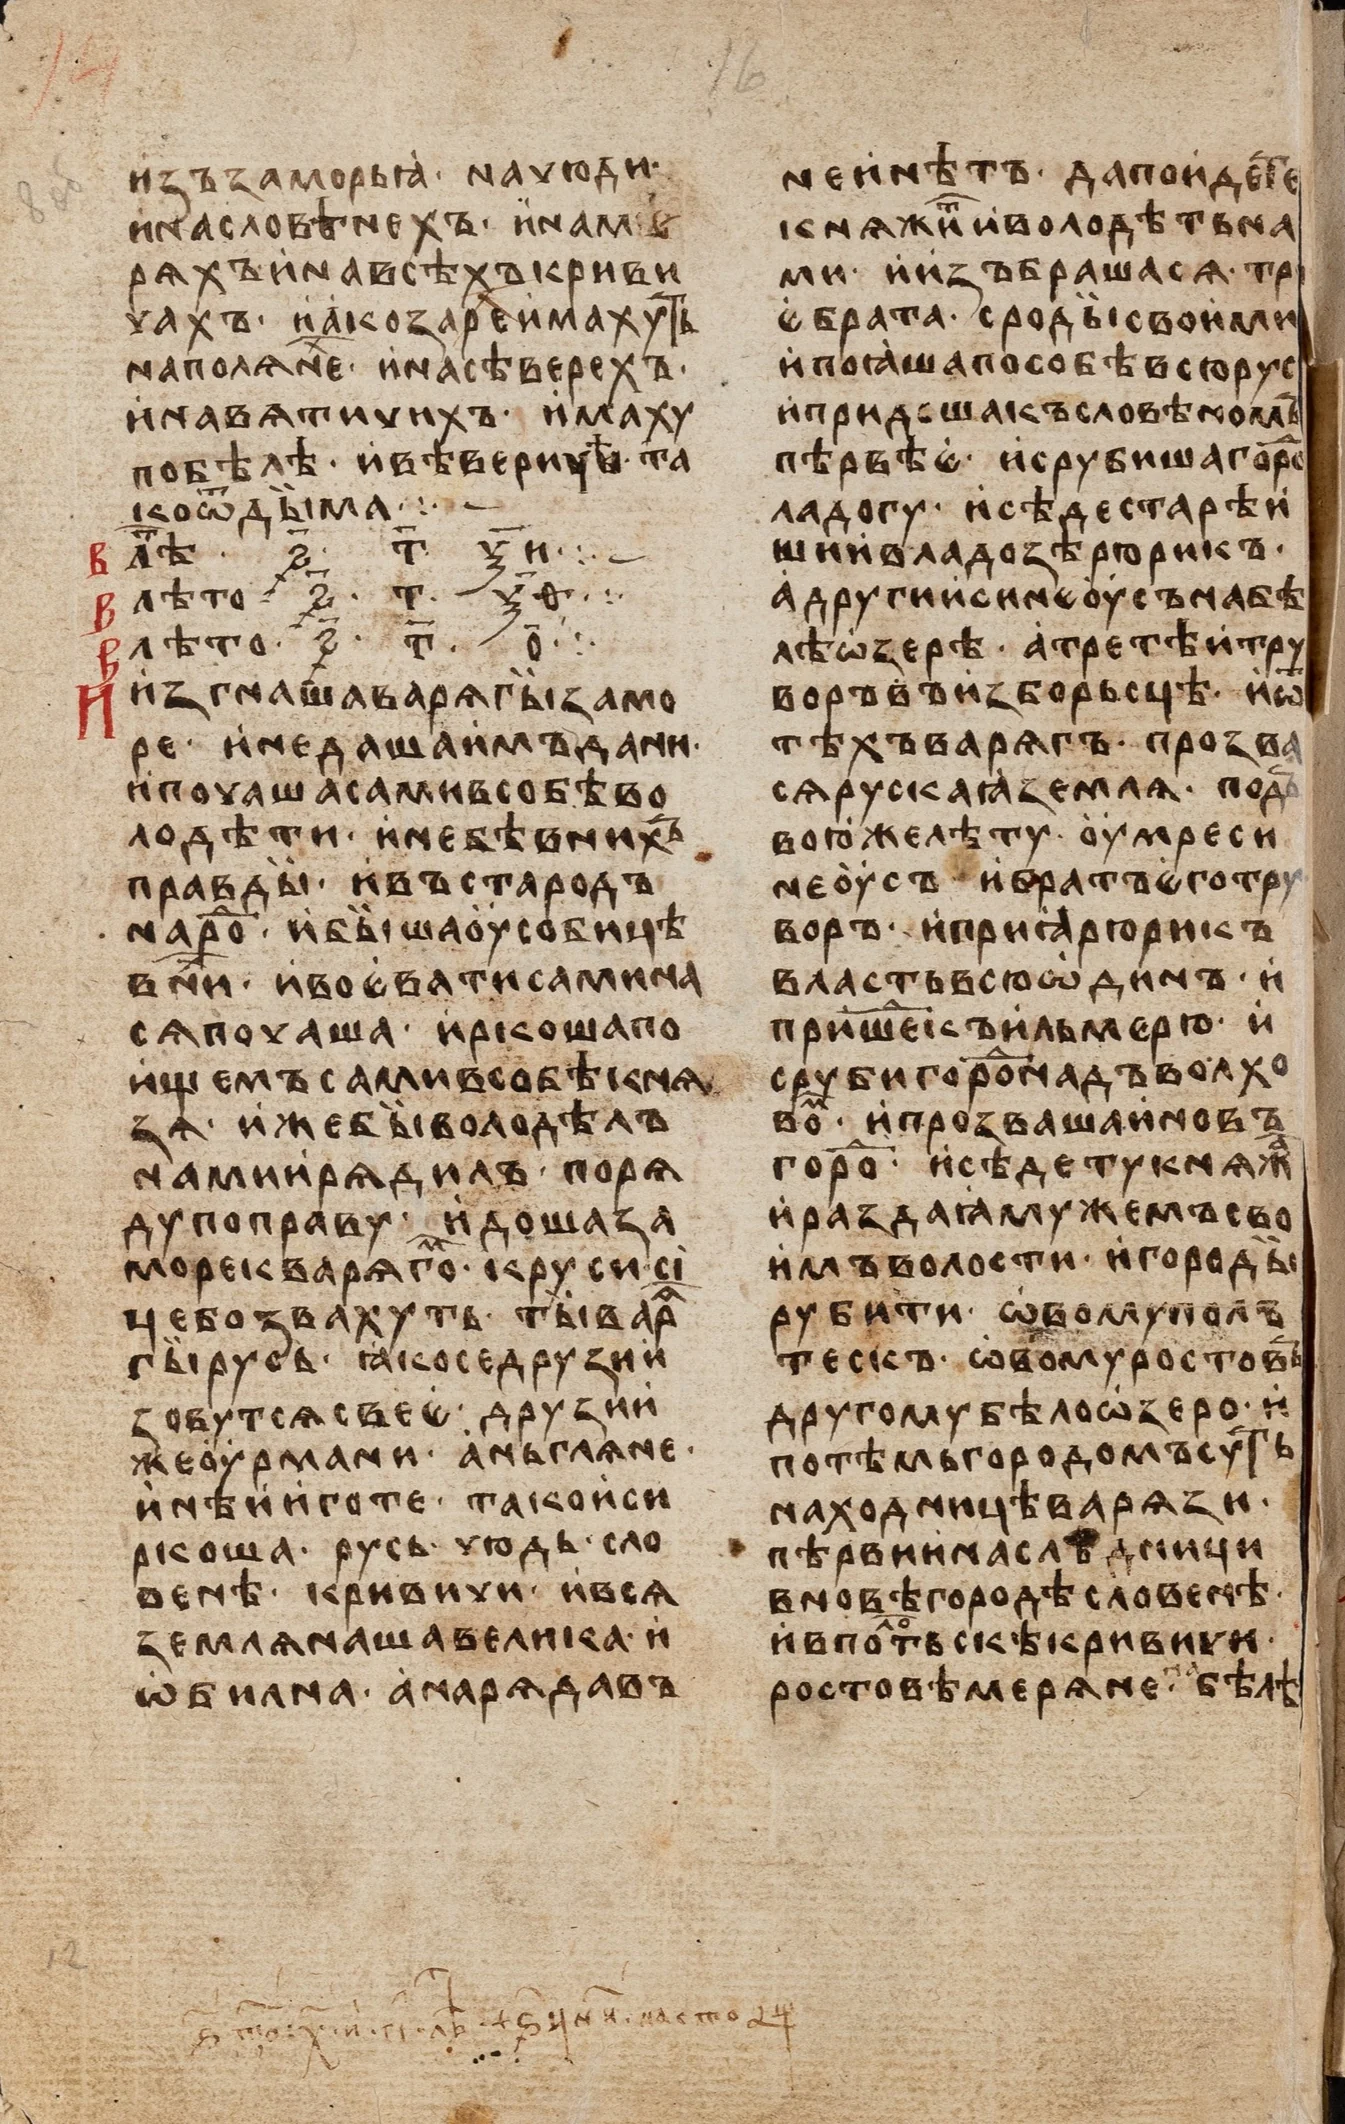 14
16
8об
изъ заморьꙗ · на чюди ·
и на словѣнехъ · и на мѣ
ряхъ и на всѣхъ криви
чахъ · и а козаре имахуть
на полянеⷯ · и на сѣверехъ ·
и на вятичихъ · имаху
по бѣлѣ · и вѣверици · та
ко ѿ дꙑма ·:·
В лѣⷮ · ҂ѕ҃ · т҃ · ѯ҃и ·:·
В лѣто ҂ѕ҃ · т · ѯ҃ѳ ·:·
В лѣто · ҂ѕ҃ · т҃ · о҃ ·:·
И изгнаша варягꙑ за мо
ре · и не даша имъ дани ·
и почаша сами в собѣ во
лодѣти · и не бѣ в нихъ
правдꙑ · и въста родъ
на роⷣ · и бꙑша ѹсобицѣ
в ниⷯ · и воєвати сами на
ся почаша · и ркоша по
ищемъ сами в собѣ кня
зя · иже бꙑ володѣлъ
нами и рядилъ · по ря
ду по праву · идоша за
море к варягоⷨ · к руси · сі
це бо звахуть · тꙑ варѧ
гꙑ русь · ꙗко се друзии
зовутся свеє · друзии
же ѹрмани · аньгляне ·
инѣи и готе · тако и си
ркоша · русь · чюдь · сло
венѣ · кривичи · и вся
земля наша велика · и
ѡбилна · а наряда въ
неи нѣтъ · да поидете
княжиⷮ и володѣть на
ми · и изъбрашася · три
єбрата · с родꙑ своими
и поꙗша по собѣ всю рус
и придоша къ словѣномъ
пѣрвѣє · и срубиша гороⷣ
ладогу · и сѣде старѣи
шии в ладозѣ рюрикъ ·
а другии синєѹсъ на бѣ
лѣ ѡзерѣ · а третѣи тру
воръ въ изборьсцѣ · и ѿ
тѣхъ варягъ · прозва
ся рускаꙗ земля · по дъ
вою же лѣту · ѹмре си
неѹсъ и братъ єго тру
воръ · и приꙗ рюрикъ
власть всю ѡдинъ · и
пришеⷣ къ ильмерю · и
сруби гороⷣ надъ волхо
воⷨ · и прозваша и новъ
гороⷣ · и сѣде ту княжѧ
и раздаꙗ мужемъ сво
имъ волости · и городꙑ
рубити · ѡвому полъ
тескъ · ѡвому ростовъ
другому бѣлоѡзеро · и
по тѣмь городомъ суть
находницѣ варязи ·
пѣрвии наслѣдници
в новѣгородѣ словенѣ ·
и в полотьскѣ кривичи ·
ростовѣ меряне · на бѣлѣ
12